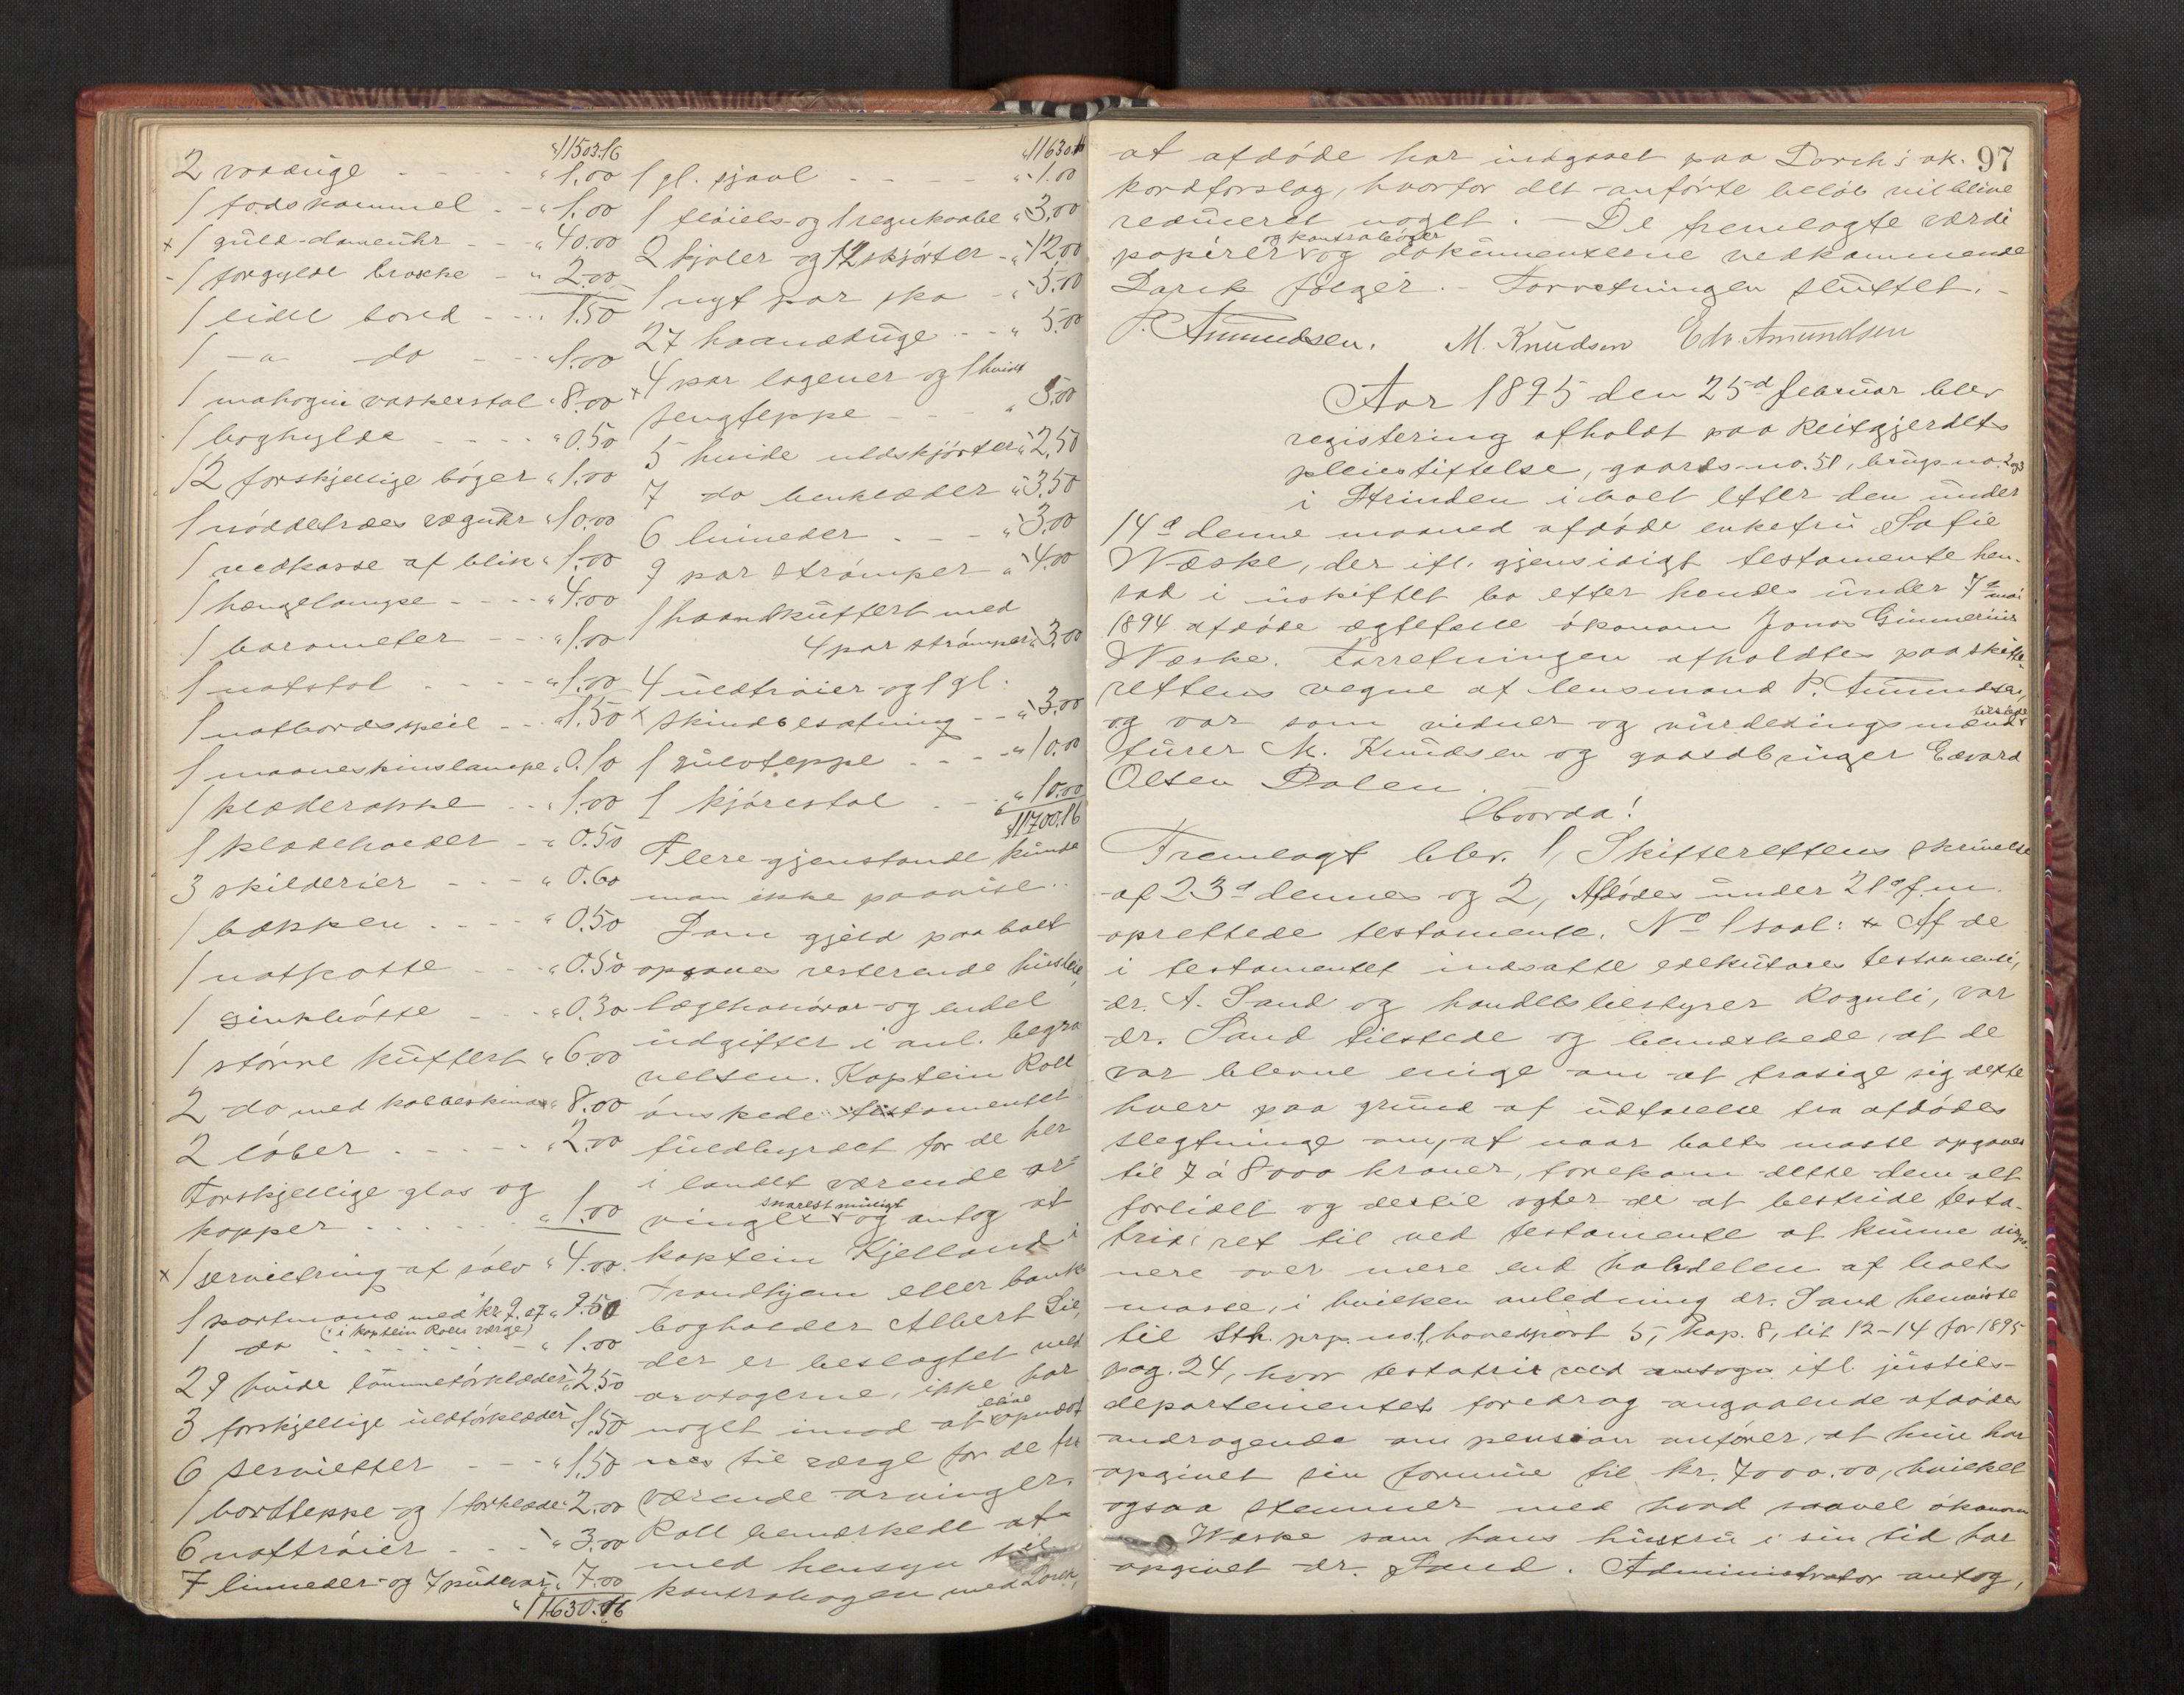 "11503.16
2 vaaduge - - - - - " 1.00
1 fodskammel - - " 1.00
× 1 guld-dameuhr - - " 40.00
- 1 forgyldt broche - " 2.00
1 lidet bord - - - " 1.50
1 -"- do - - - " 1.00
1 mahogni vaskerstol " 8.00
1 boghylde - - - - " 0.50
12 forskjellige bøger " 1.00
1 nøddetræes væguhr " 10.00
1 vedkasse af blik " 1.00
1 hængelampe - - - - " 4.00
1 barometer - - - " 1.00
1 natstol - - - - " 1.00
1 natbordsspeil - - " 1.50
1 maaneskinslampe " 0.10
1 klæderække - - " 1.00
1 kladeholder - " 0.50
3 skilderier - - - " 0.60
1 bækken - - - " 0.50
1 natpotte - - - " 0.50
1 sinkbøtte - - - " 0.30
1 større kuffert " 6.00
2 do med kobbeskind " 8.00
2 løber - - - - - " 2.00
Forskjellige glas og
kopper - - - - - - " 1.00
× 1 servietring af sølv " 4.00
1 portmonæ med kr. 9 og " 9.50
(: i kaptein Rolls værge)
1 do - - - - - - - " 1.00
29 hvide lommetørklæder " 2.50
3 forskjellige uldtørklæder " 1.50
6 servietter - - - " 1.50
1 bordteppe og 1 forklæde " 2.00
6 nattrøier - - - " 3.00
7 linneder og 7 pudevar " 7.00
"11630.16
"11630.16
1 gl. sjaal - - - - - " 1.00
1 fløiels- og 1 regnkaabe " 3.00
2 kjoler og 12 skjørter - " 12.00
1 nyt par sko - " 5.00
27 haandduge - - - " 5.00
× 4 par lagener og 1 hvidt
sengteppe - - - - " 5.00
5 hvide uldskjørter " 2.50
7 do benklæder " 3.50
6 linneder - - - " 3.00
9 par strømper " 4.00
1 haandkuffert med
4 par strømper " 3.00
4 uldtrøier og 1 gl.
× skindbesætning - - " 3.00
1 gulvteppe - - - - " 10.00
1 kjørestol - - - " 10.00
"11700.16
Flere gjenstande kunde
man ikke paavise.
Som gjeld paa boet
opgaves resterende husleie,
lægehonorar og endel
udgifter i anl. begra
velsen. Kaptein Roll
ønskede testamentet
fuldbyrdet for de her
i landet værende ar
vinger snarest muligt og antog at
kaptein Kjelland i
Trondhjem eller bank
bogholder Albert Lie,
der er beslægtet med
arvtagerne, ikke har
noget imod at blive opnævn
nes til værge for de fra
værende arvinger.
Roll bemærkede at
med hensyn til
kontrabogen med Dorch,
97
at afdøde har indgaaet paa Dorch's ak-
kordforslag, hvorfor det anførte beløb vil blive
reduceret noget. - De fremlagte værdi
papirer og kontrabøger og dokumenterne vedkommende
Dorch følger. - Forretningen sluttet. -
P. Amundsen. M. Knudsen Edv. Amundsen
Aar 1895 den 25d februar blev
registering afholdt paa Reitgjerdets
pleiestiftelse, gaards-no. 51, brugs-no. 2 og 3
i Strinden i boet efter den under
14d denne maaned afdøde enkefru Sofie
Wæske, der ifl. gjensidigt testamente hen-
sad i uskiftet bo efter hendes under 7d mai
1894 afdøde ægtefælle økonom Jonas Ginnerius
Wæske. Forretningen afholdtes paa skifte-
rettens vegne af lensmand P. Amundsen,
og var som vidner og vurderingsmænd tilstede
furer M. Knudsen og gaardbruger Edvard
Olsen Dalen.
Hvorda!
Fremlagt blev. 1, Skifterettens skrivelse
af 23d dennes og 2, Afdødes under 21d f.m.
oprettede testamente. No 1 saal: Af de
i testamentet indsatte exekutores testamenti,
dr. A. Sand og handelsbestyrer Roguli, var
dr. Sand tilstede og bemærkede, at de
var blevne enige om at frasige sig dette
hverv paa grund af udtalelse fra afdødes
slegtninge om, at naar boets masse opgaves
til 7 à 8000 kroner, forekom dette dem alt
forlidet og dertil agter de at bestride testa-
trix' ret til ved testamente at kunne dispo-
nere over mere end halvdelen af boets
masse, i hvilken anledning dr. Sand henviste
til Sth. prp. no. 1, hovedpost 5, kap. 8, tit 12-14 for 1895
pag. 24, hvor testatrix ifl. justits-
departementets foredrag angaaende afdødes
andragende om pension anfører, at hun har
opgivet sin formue til kr. 7000.00, hvilket
ogsaa stemmer med hvad saavel økonom
Wæske som hans hustru i sin tid har
opgivet dr. Sand. Administrator antog,